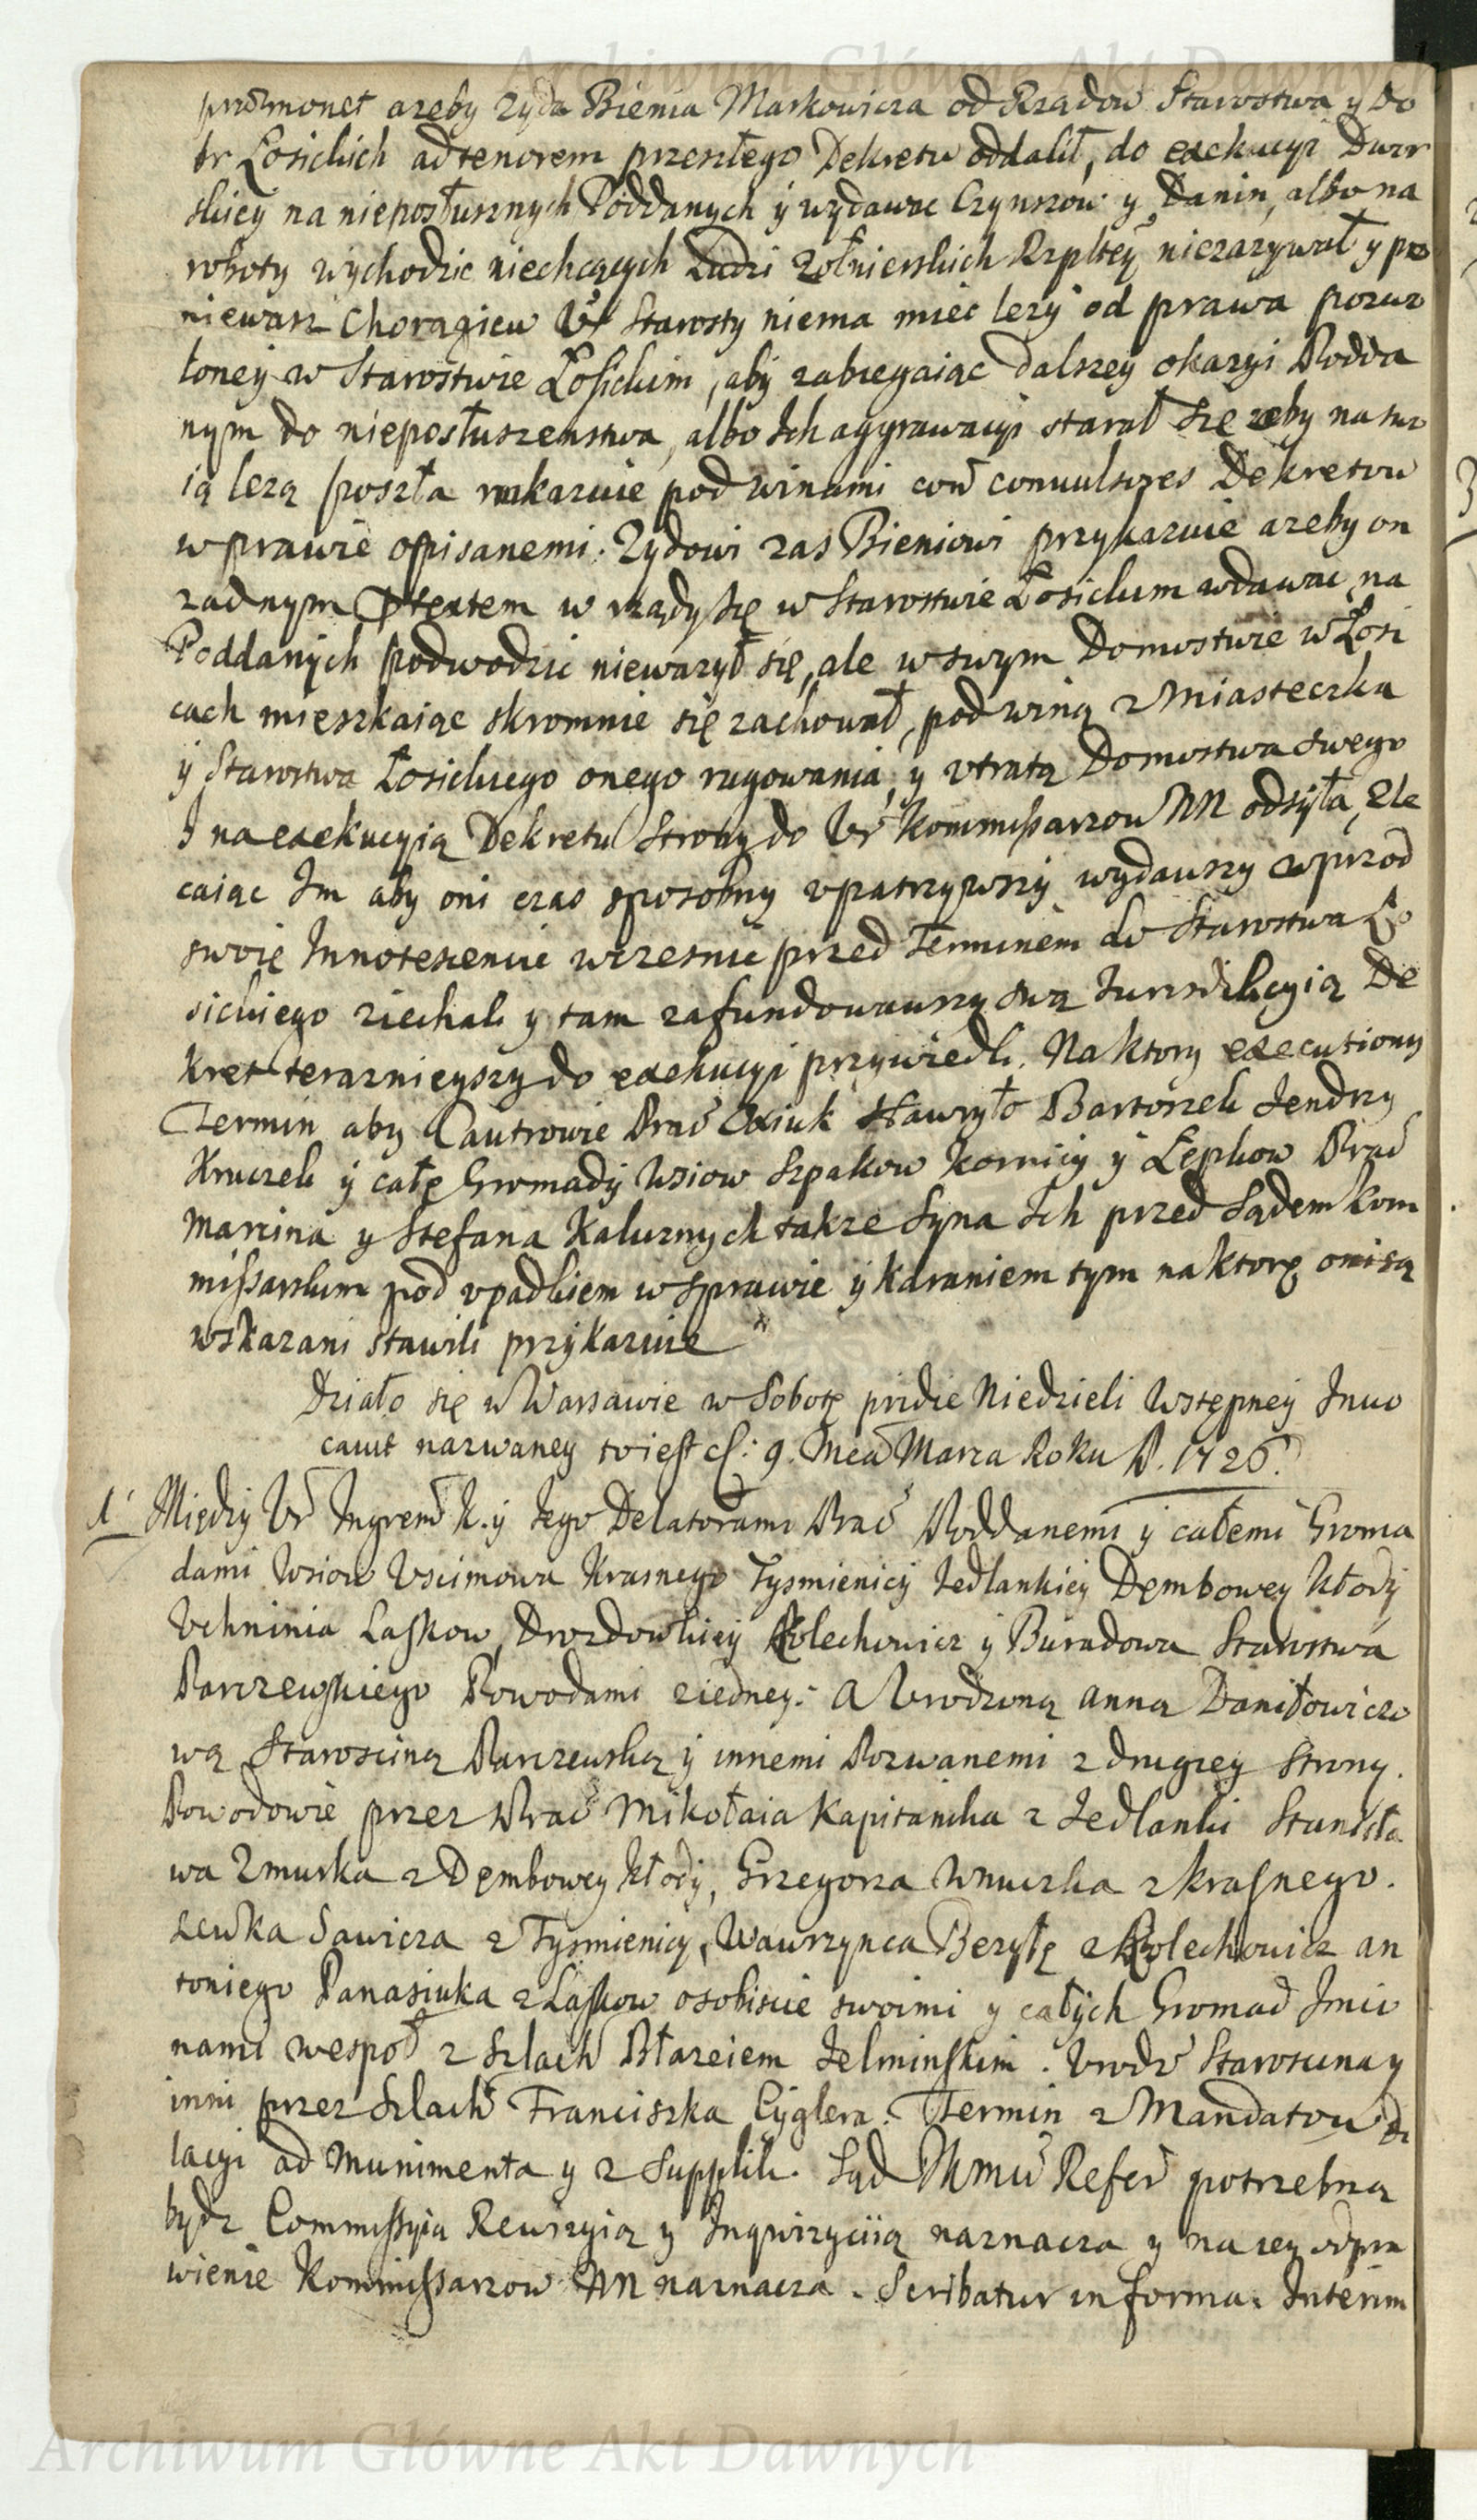 Archiwum Główne Akt Dawnych
przõmonet ażeby zyda Bienia Markowicza od Rządow Starostwa y Do
br Łosickich ad tenorem przeszłego Dekretu oddalił, do exekucyi Dwor
skiey na nieposłusznych Poddanych y wydawac Czynszow y Danin, albo na
roboty wychodzic niechcących Ludzi Zołnierskich Rzpltey niezazywał y po
niewasz Choragiew Ur Starosty niema miec lezy od prawa pozwo
loney w Starostwie Łosickim, aby zabiegaiąc dalszey okazyi Podda
nym do nieposłuszenstwa, albo Ich aggrawacyi starał się zeby na swo
ią lezą poszła nakazuie pod winami con̄ convulsores Dekretow
w prawie opisanemi. Zydowi zas Bieniowi przykazuie azeby on
zadnym ptextem w rządy się w Starostwie Łosickim wdawac, na
Poddanych podwodzic niewazył się, ale w swym Domostwie w Łosi
cach mieszkaiąc skromnie się zachował, pod winą z Miasteczka
y Starostwa Łosickiego onego rugowania, y utratą Domostwa swego
I na exekucyią Dekretu Strony do Ur Kommissarzow NN odsyła, Zle
caiąc Im aby oni czas sposobny upatrzywszy wydawszy wprzod
swoie Innotescencie wczesnie przed Terminem do Starostwa Ło
sickiego ziechali y tam zafundowawszy swą Iurisdikcyią De
kret teraznieyszy do exekucyi przywiedli. Na ktory executiony
Termin aby Cautrowie Prac Oxiuk Hawryło Bartoszek Jendrzy
Kruczek y całe Gromady Wsiow Szpakow Kornicy y Łepkow Prac
Marcina y Stefana Kaluznych takze Syna Ich przed Sądem Kom
missarskim pod upadkiem w sprawie y karaniem tym na ktore oni są
wskazani stawili przykazuie
Działo się w Warszawie w Sobotę pridie Niedzieli Wstępney Invo
cavit nazwaney to iest d: 9. Mca Marca Roku P. 1726.
1 Między Ur Instygem̄ K. y Iego Delatorami Prac Poddanemi y całemi Groma
dami Wsiow Uscimowa Krasnego Tysmienicy Jedlankiey Dembowey Kłody
Uchninia Laskow, Drozdowkiey Kolechowicz y Buradowa Starostwa
Parczewskiego Powodami z iedney: A Urodzoną Anną Daniłowiczo
wą Staroscing Parczewską y innemi Pozwanemi z drugiey Strony.
Powodowie przez Prac Mikołaia Kapitanika z Jedlanki Stanisła
wa Zmurka z Dembowey Kłody, Grzegorza Wnuczka z Krasnego.
Lewka Sawicza z Tysmienicy, Wawrzynca Beryłę z Kolechowicz An
toniego Panasiuka z Laskow osobiscie swoimi y całych Gromad Imie
nami wespoł z Szlach Błazeiem Jelminskim. Urodz Staroscina y
inni przez Szlach Franciszka Cyglera. Termin z Mandatow di
lacyi ad Munimenta y z Supplik. Sąd NMci Refer potrzebną
bydz Commissyią Rewizyią y Inqwizycyią naznacza y na iey odpra
wienie Kommissarzow NN naznacza. Scribatur in forma. Interim
Archiwum Główne Akt Dawnych